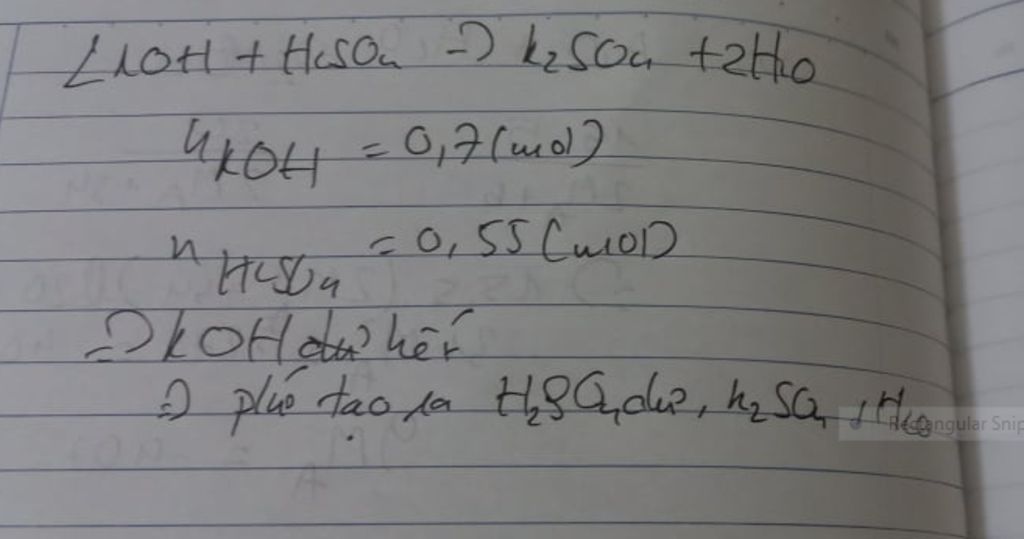 2KOH + H2SO4 => K2SO4 + 2H2O
nKOH = 0,7 (mol)
nH2SO4 = 0,55 (mol)
=> KOH hết
=> pứ tạo ra H2SO4 dư, K2SO4, H2O
Rectangular Snip